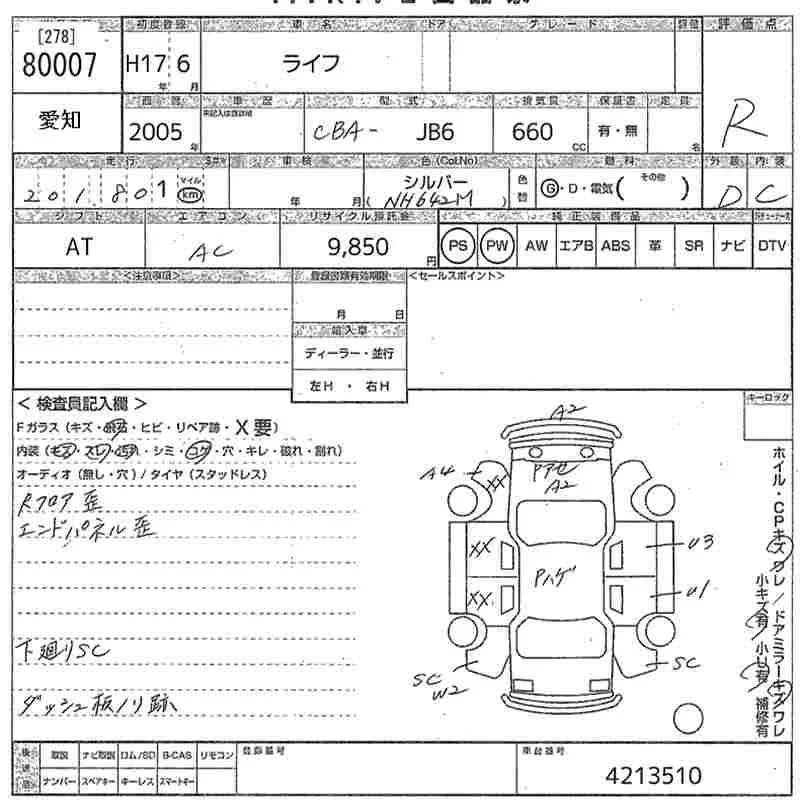 [278]
80007
初度登録
車名
ドア
グレード
評価点
H17年 6月
ライフ
R
愛知
西暦
車歴
型式
排気量
保証書
定員
2005年
CBA- JB6
660 CC
有・無
名
走行
車検
色(Col.No)
燃料
外装
内装
201,801
マイル
km
年 月
シルバー
(NH642M)
色替
G・D・電気(その他)
D
C
シフト
エアコン
リサイクル預託金
純正装備品
AT
AC
9,850円
PS PW AW エアB ABS 革 SR ナビ DTV
<注意事項>
登録書類有効期限
<セールスポイント>
月 日
輸入車
ディーラー・並行
左H ・ 右H
< 検査員記入欄 >
キーロック
Fガラス(キズ・飛石・ヒビ・リペア跡・X要)
内装(キズ・スレ・汚れ・シミ・コゲ・穴・キレ・破れ・割れ)
オーディオ(無し・穴)/タイヤ(スタッドレス)
Rフロア 歪
エンドパネル 歪
下廻りSC
ダッシュ板ノリ跡
A2
A4
XX
Pアセ
A2
XX
U3
Pハゲ
XX.
U1
SC
W2
SC
ホイル・CPキズワレ/ドアミラーキズワレ
小キズ有/小U有/補修有
後送品
取説
ナビ取説
ロム/SD
B-CAS
リモコン
ナンバー
スペアキー
キーレス
スマートキー
登録番号
車台番号
4213510